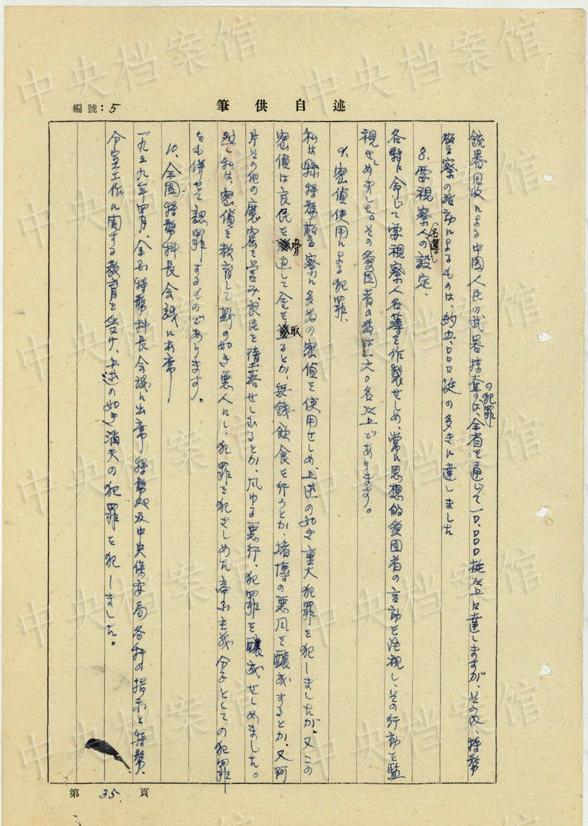 編號：5
述自供筆
銃器回收による中國人民の武器掠奪の犯罪は、全省を通じて一〇,〇〇〇挺以上に達しますが、その内、特務
警察の活動によるものは、約五,〇〇〇挺の多きに達しました
8. 要視察人(名簿)の設定.
各縣に命じて要視察人名簿を作製せしめ、常に思想的愛国者の言動を注視し、その行動を監
視せしめました。その愛国者の数は六〇名以上であります。
9. 密偵使用による犯罪.
私は縣特務警察に多数の密偵を使用せしめ、上述の如き重大犯罪を犯しましたが、又この
密偵は良民を脅迫して金をとるとか、無錢飲食を行うとか、賭博の悪風を醸成するとか、又阿
片その他の魔窟を営み良民を墮落せしむるとか、凡ゆる悪行、犯罪を醸成せしめました。
私は、密偵を教育して斯の如き悪人にし、犯罪を犯さしめた帝国主義分子としての犯罪
をも併せて認罪するものであります。
10. 全国特務科長会議に出席
一九三九年 月、全国特務科長会議に出席 特務処及中央保安局各科の指示と特務、
分室工作に関する教育を受け、上述の如き 犯罪を犯しました。
第 35 頁
中央档案馆